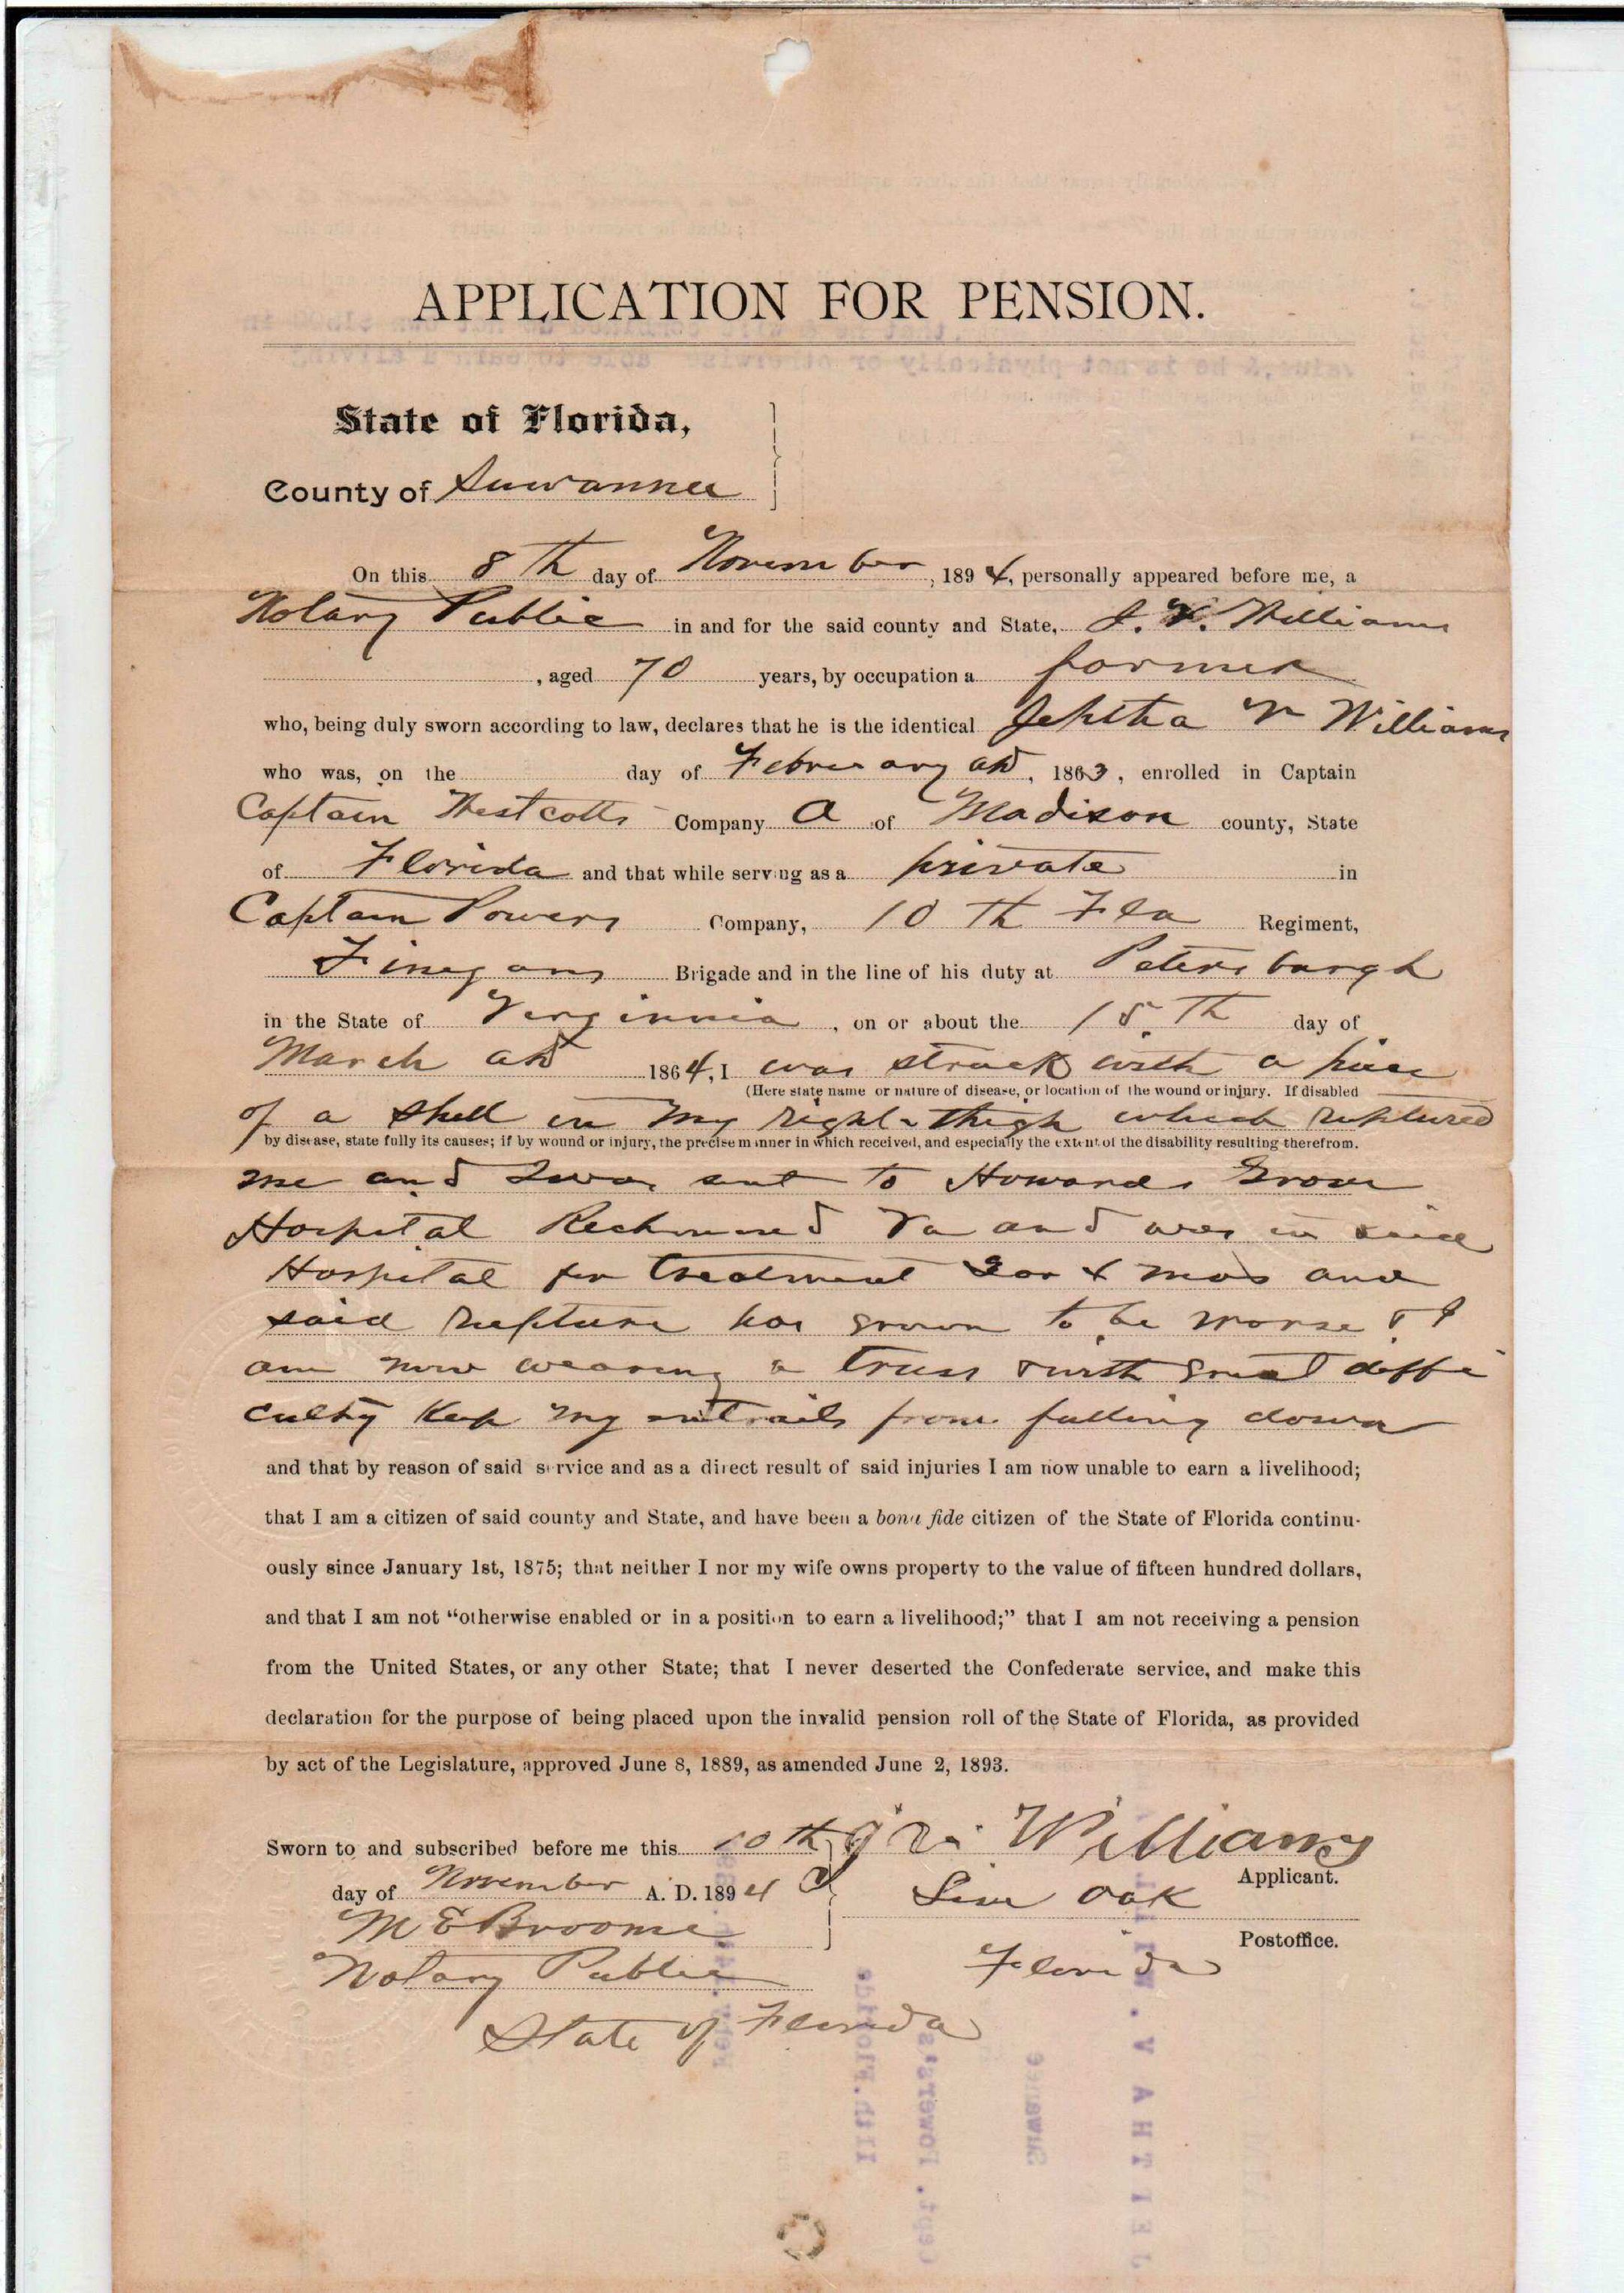 APPLICATION FOR PENSION.
State of Florida,
County of Suwannee
On this 8th day of November, 1894, personally appeared before me, a
Notary Public in and for the said county and State, J. V. Williams
, aged 70 years, by occupation a farmer
who, being duly sworn according to law, declares that he is the identical Jeptha V Williams
who was, on the day of February AD, 1863, enrolled in Captain
Captain Westcotts Company A of Madison county, State
of Florida and that while serving as a private in
Captain Powers Company, 10th Fla Regiment,
Finegans Brigade and in the line of his duty at Petersburgh
in the State of Verginnia, on or about the 15th day of
March AD 1864, I was struck with a piece
(Here state name or nature of disease, or location of the wound or injury. If disabled
of a shell in my right thigh which ruptured
by disease, state fully its causes; if by wound or injury, the precise manner in which received, and especially the extent of the disability resulting therefrom.
me and I was sent to Howards Grove
Hospital Richmond Va and was in said
Hospital for treatment 3 or 4 mos and
said rupture has grown to be worse & I
am now wearing a truss & with great diffi
culty keep my entrails from falling down
and that by reason of said service and as a direct result of said injuries I am now unable to earn a livelihood;
that I am a citizen of said county and State, and have been a bona fide citizen of the State of Florida continu-
ously since January 1st, 1875; that neither I nor my wife owns property to the value of fifteen hundred dollars,
and that I am not "otherwise enabled or in a position to earn a livelihood;" that I am not receiving a pension
from the United States, or any other State; that I never deserted the Confederate service, and make this
declaration for the purpose of being placed upon the invalid pension roll of the State of Florida, as provided
by act of the Legislature, approved June 8, 1889, as amended June 2, 1893.
Sworn to and subscribed before me this 10th J V Williams
day of November A. D. 1894 Applicant.
Live Oak
M E Broome Postoffice.
Notary Public Florida
State of Florida